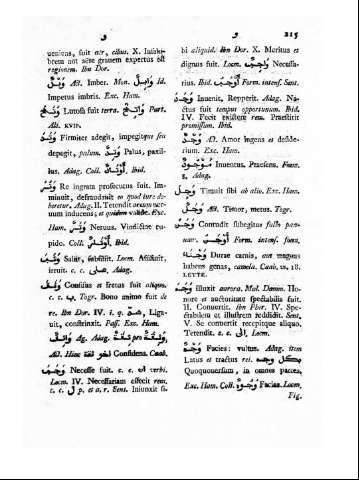 و
و
215
ueniens, fuit aer, cibus. X. Insalu-
brem aut aëre grauem expertus est
regionem. Ibn Dor.
Act. Imber. Mon. وَابِلٌ Id.
Impetus imbris. Exc. Ham.
Lutosa fuit terra. Part.
Ali. XVII.
وَتَدَ Firmiter adegit, impegitque seu
depegit, palum. وَتِدٌ Palus, paxil-
lus. Adag. Coll. أَوْتَادٌ Ibid.
وَتَرَ Re ingrata prosecutus fuit. Im-
minuit, defraudauit eo quod iure de-
beretur. Adag. II. Tetendit arcum ner-
uum inducens; et quidem valide. Exc.
Ham. وَتَرٌ Neruus. Vindictae cu-
pido. Coll. أَوْتَارٌ Ibid.
وَثَبَ Saliit, subsiliit. Locm. Assiluit,
irruit. c. c. على, Adag.
وَثِقَ Confisus et fretus fuit aliquo.
c. c. ب Togr. Bono animo fuit de
re. Ibn Dor. IV. i. q. Liga-
uit, constrinxit. Pass. Exc. Ham.
وَاثِقٌ Ag. Adag. ثِقَةٌ pro
Ad. Hinc اخو ثقة Confidens. Caab.
وَجَبَ Necesse fuit. c. c. verbi.
Locm. IV. Necessariam effecit rem.
c. c. ل p. et a. r. Sent. Iniunxit si-
bi aliquid. Ibn Dor. X. Meritus et
dignus fuit. Locm. وَاجِبٌ Necessa-
rius. Ibid. أَوْجَبُ Form. intens. Sent.
وَجَدَ Inuenit, Repperit. Adag. Na-
ctus fuit tempus opportunum. Ibid.
IV. Fecit existere rem. Praestitit
promissum. Ibid.
وَجْدٌ Act. Amor ingens et deside-
rium. Exc. Ham.
مَوْجُودٌ Inuentus. Praesens. Faem.
s. Adag.
وَجِلَ Timuit sibi ab alio. Exc. Ham.
وَجَلٌ Act. Timor, metus. Togr.
Contudit subegitue fullo pan-
num. Form. intens. foem.
Durae carnis, aut magnas
habens genas, camela. Caab. vs. 18.
LETTE.
Illuxit aurora. Mul. Damm. Ho-
nore et auctoritate spectabilis fuit.
II. Conuertit. Ibn Dor. IV. Spe-
ctabilem et illustrem reddidit. Sent.
V. Se conuertit recepitque aliquo.
Tetendit. c. c. الى, Locm.
وَجْهٌ Facies: vultus. Adag. item
Latus et tractus rei. بكل وجه
Quoquouersum, in omnes partes.
Exc. Ham. Coll. وُجُوهٌ Facies. Locm.
Fig.